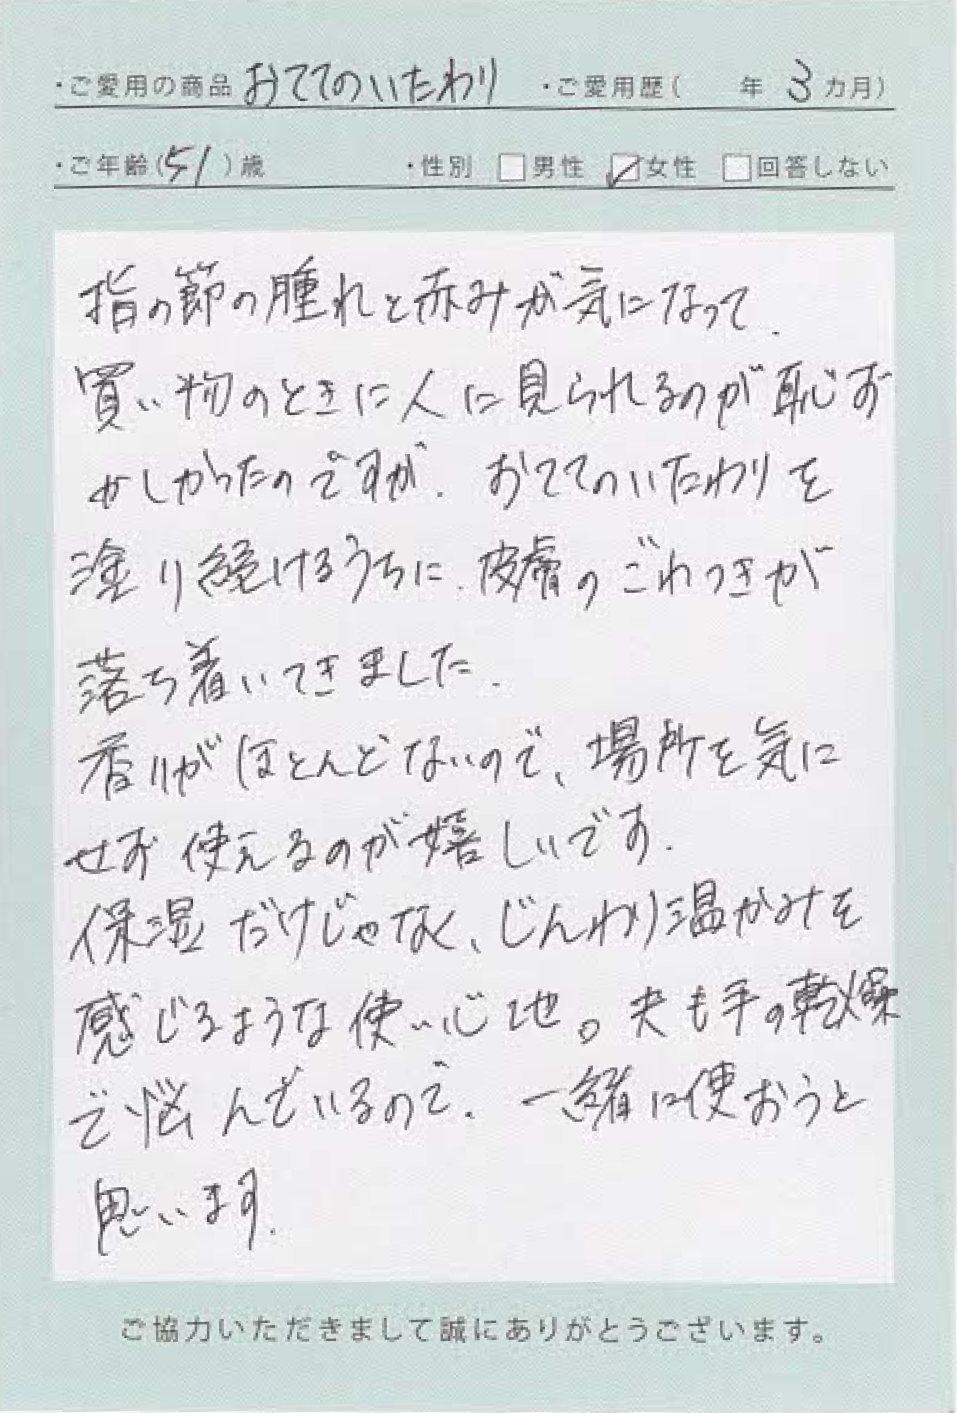 ・ご愛用の商品 おててのいたわり ・ご愛用歴( 年 3 カ月)
・ご年齢(51)歳 ・性別 □男性 ☑女性 □回答しない
指の節の腫れと赤みが気になって、
買い物のときに人に見られるのが恥ず
かしかったのですが、おててのいたわりを
塗り続けるうちに、皮膚のごわつきが
落ち着いてきました。
香りがほとんどないので、場所を気に
せず使えるのが嬉しいです。
保湿だけじゃなく、じんわり温かみを
感じるような使い心地。夫も手の乾燥
で悩んでいるので、一緒に使おうと
思います。
ご協力いただきまして誠にありがとうございます。